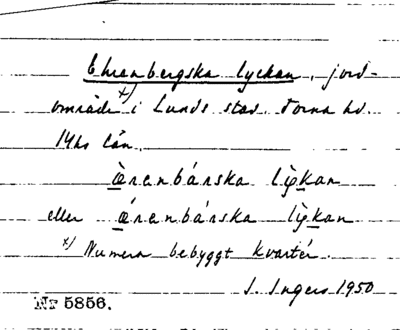 Ehrenbergska lyckan, jord-
område x) i Lunds stad. Torna hd.
Mhs län.
ὰrenbárska lỳkan
eller árenbárska lỳkan
x) Numera bebyggt kvarter.
I. Ingers 1950
Nr 5856.